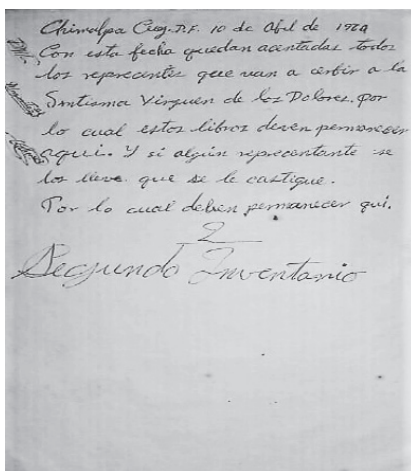 Chimalpa Cuaj. D.F. 10 de Abil de 1979
Con esta fecha quedan acentadas todos
los reprecentes que van a cerbir a la
Santisma Virguen de los Dolores. por
lo cual estos libros deven permanecer
aqui. Y si algún reprecentante se
los lleve que se le castigue.
Por lo cual deben permanecer qui.
2
Segundo Inventario